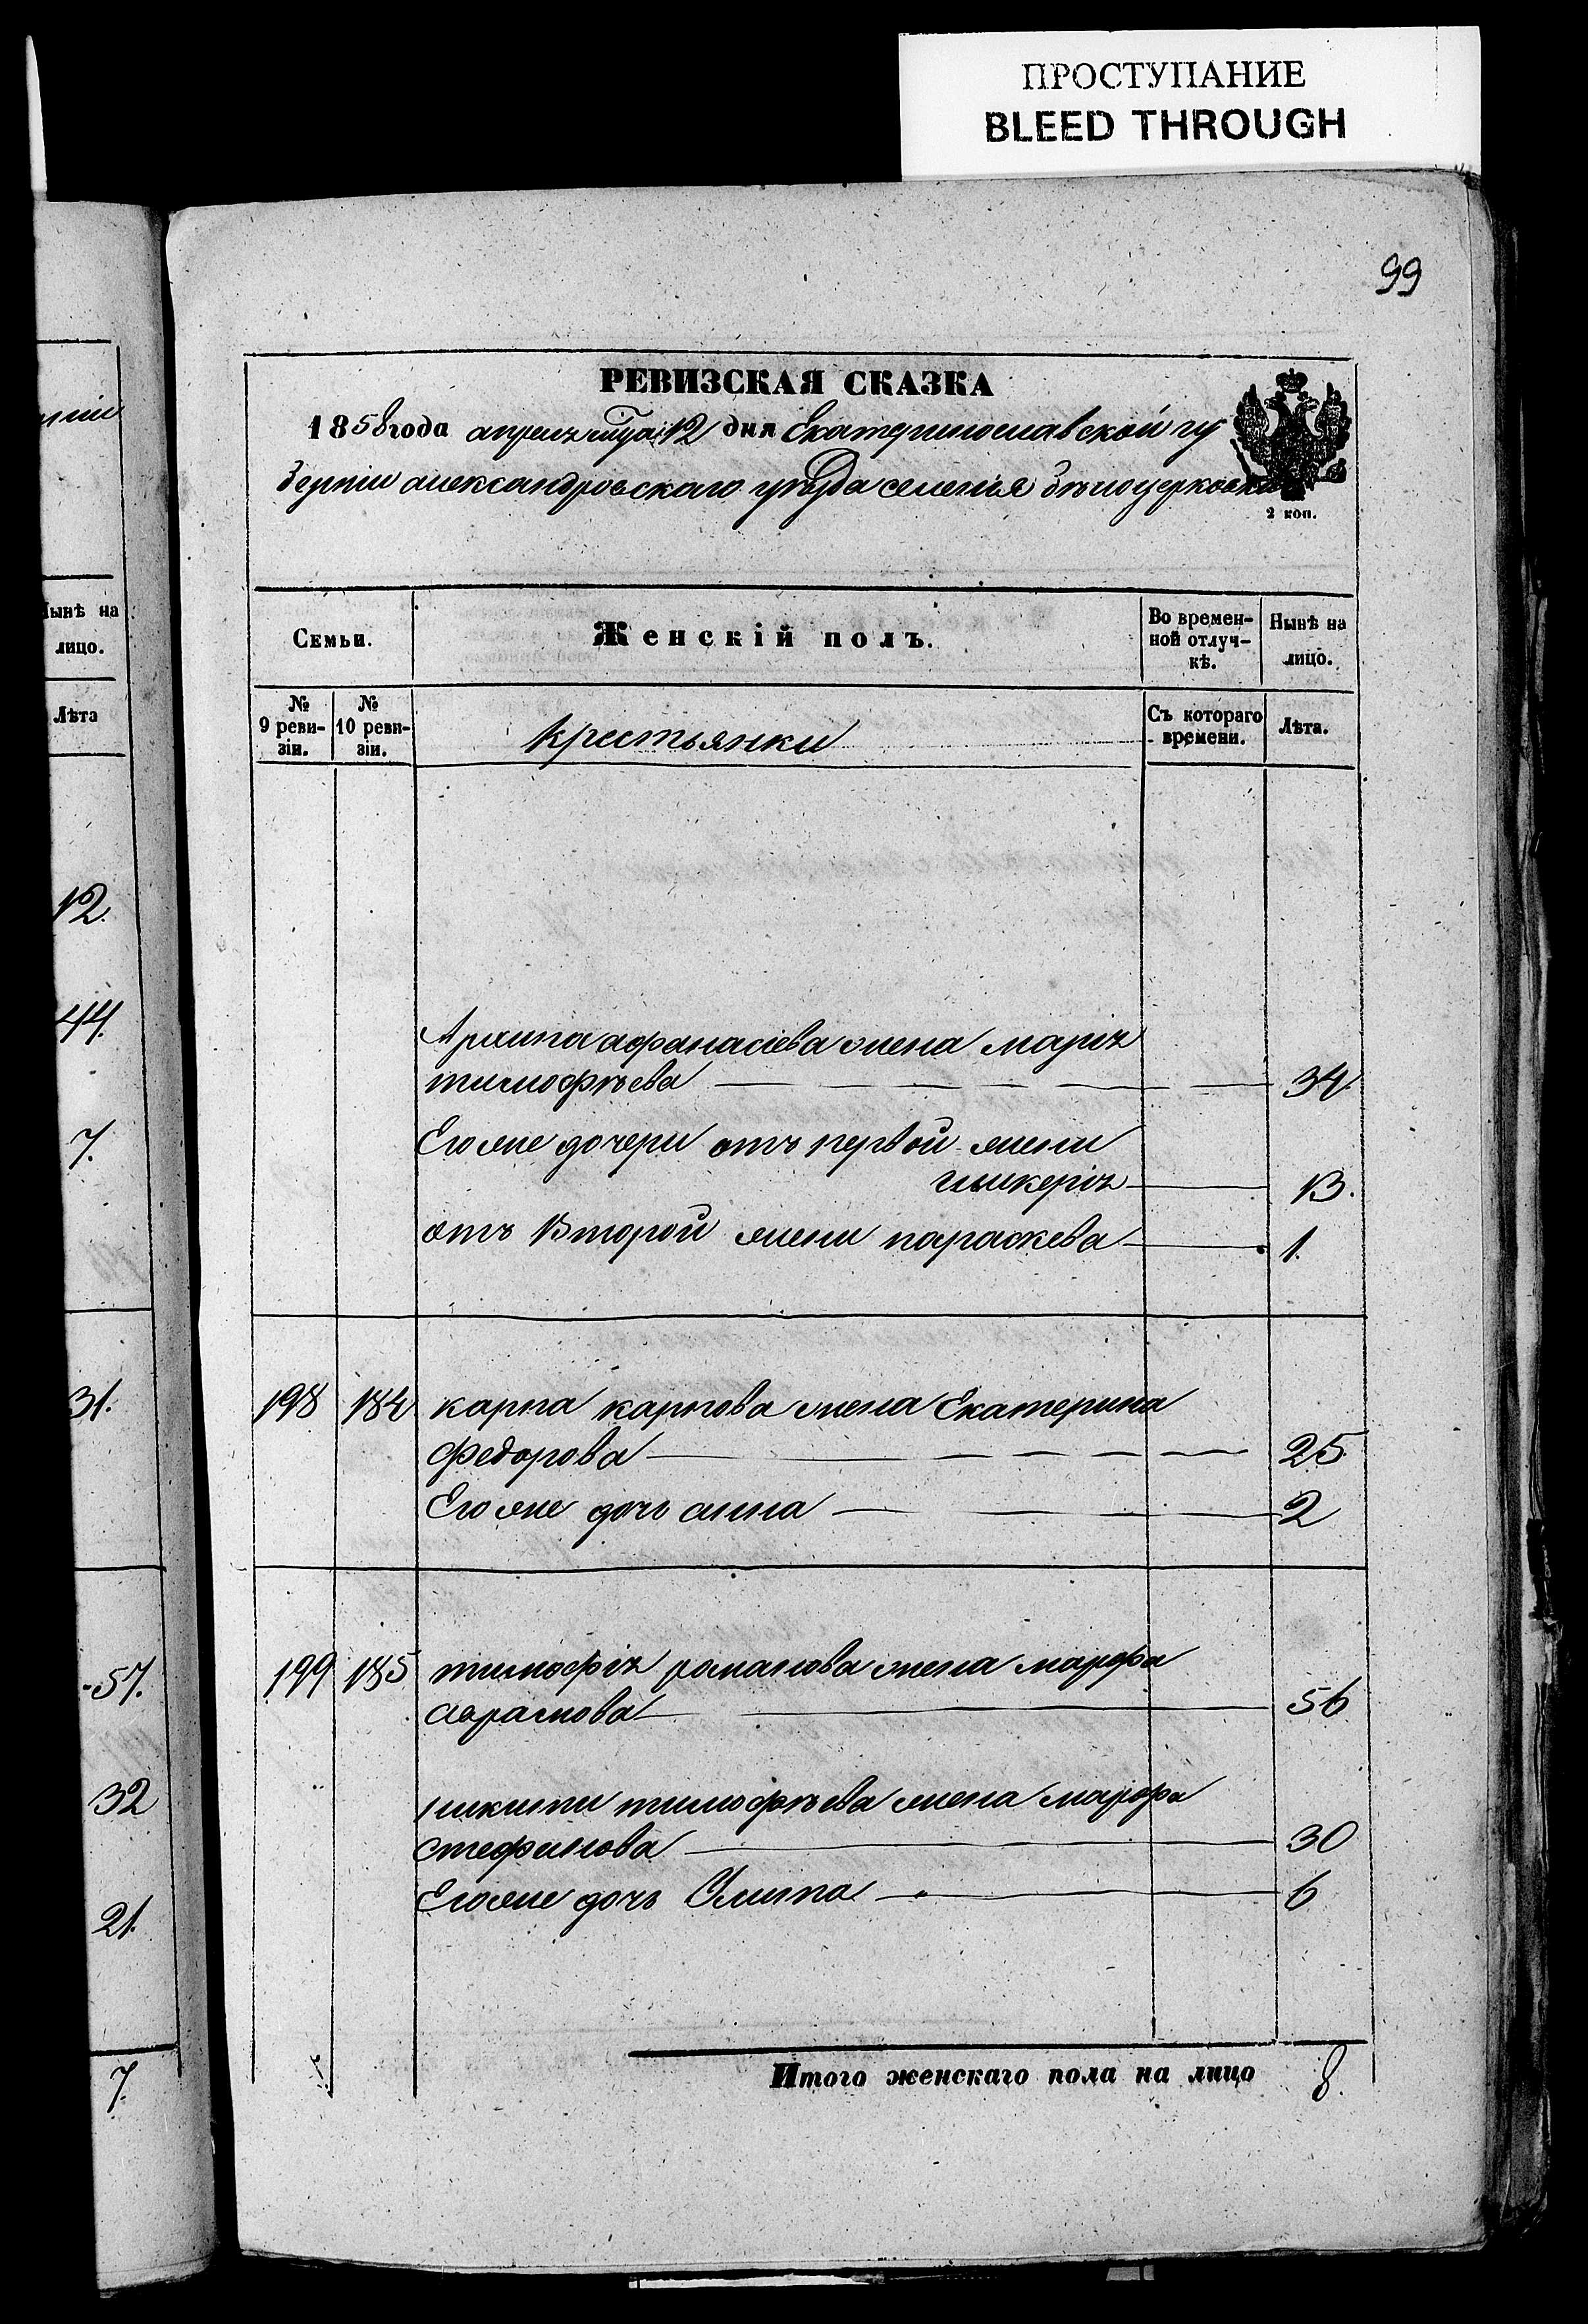 ПРОСТУПАНИЕ
BLEED THROUGH
99
РЕВИЗСКАЯ СКАЗКА
1858 года апреля мца 12 дня Екатеринославской гу
берніи александровскаго уѣзда селенія бѣлоцерковки
2 коп.
Семьи.
Женскій полъ.
Во времен-
ной отлуч-
кѣ.
Нынѣ на
лицо.
№
9 реви-
зіи.
№
10 реви-
зіи.
крестьянки
Съ котораго
времени.
Лѣта.
Архипа афанасіева жена марія
тимофѣева 34.
Его же дочери отъ первой жени
гликерія 13.
отъ Второй жени параскева 1.
198 184 карпа карпова жена Екатерина
федорова 25
Его же дочь анна 2
199 185 тимофія романова жена марфа
аврамова 56
никити тимофѣева жена марфа
стефанова 30
Его же дочь Улита 6
Итого женскаго пола на лицо 8.
Нынѣ на
лицо.
Лѣта
12.
44.
7.
31.
57.
32
21.
7.